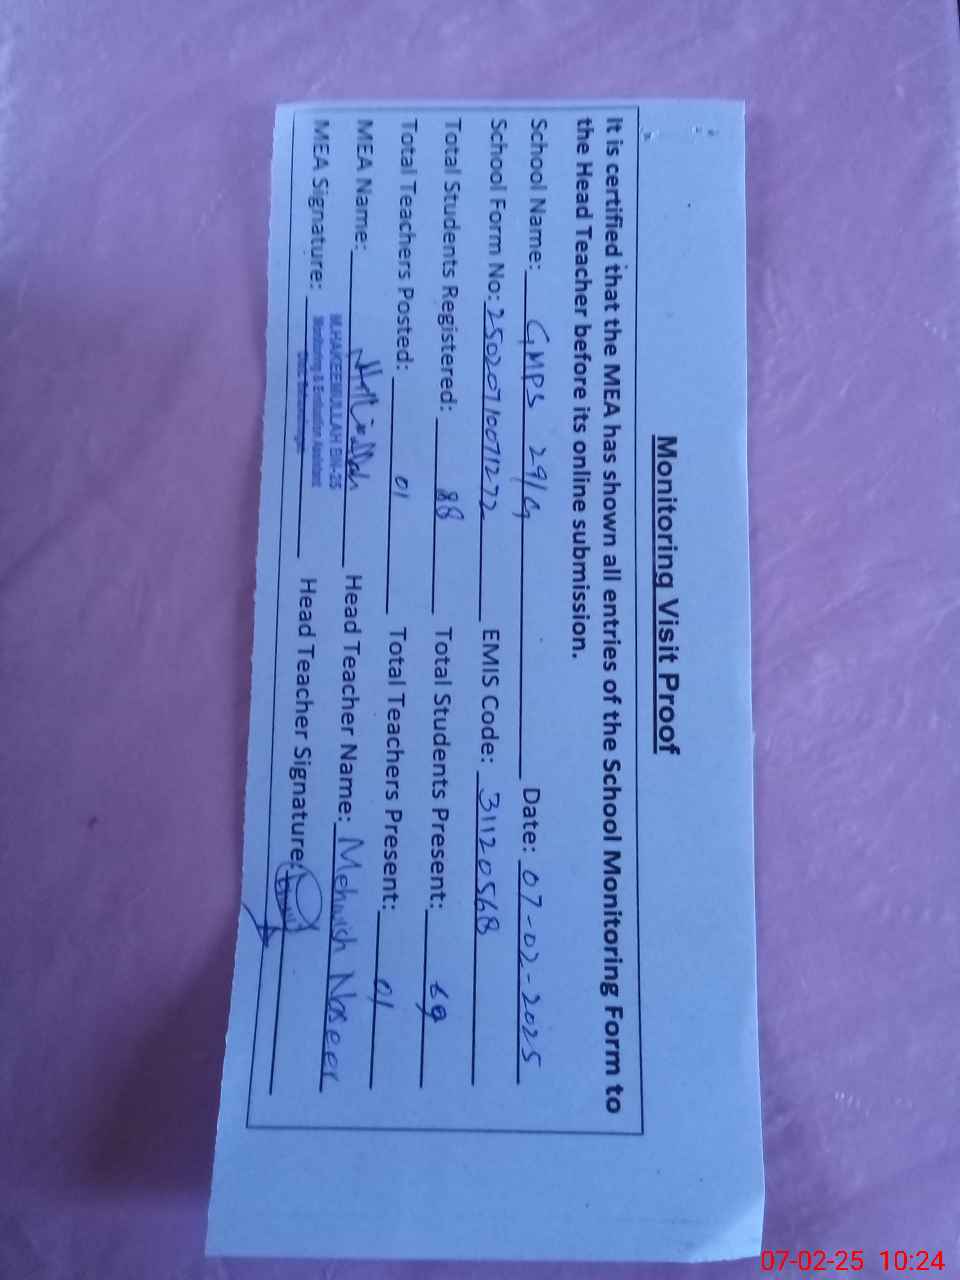 Monitoring Visit Proof
It is certified that the MEA has shown all entries of the School Monitoring Form to
the Head Teacher before its online submission.
School Name: GMPS 29/G Date: 07-02-2025
School Form No: 25020710071272 EMIS Code: 31120568
Total Students Registered: 88 Total Students Present: 69
Total Teachers Posted: 01 Total Teachers Present: 01
MEA Name: Head Teacher Name: Mehwish Naseer
M.HAKEEMULLAH BW-25
Monitoring & Evaluation Assistant
MEA Signature: Head Teacher Signature:
07-02-25 10:24